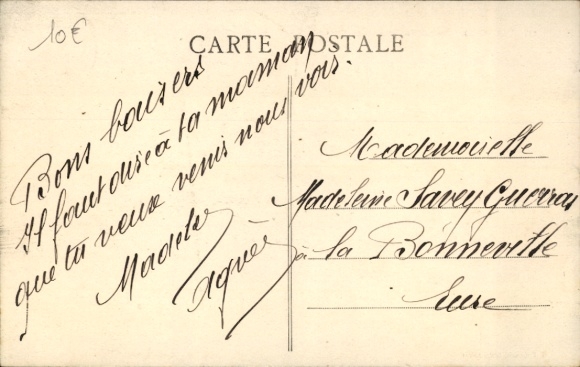 10€
CARTE POSTALE
Bons baisers
Il faut dire à ta maman
que tu veux venir nous voir.
Madele
Mademoiselle
Madeleine Savey Guerraz
à la Bonneville
Eure